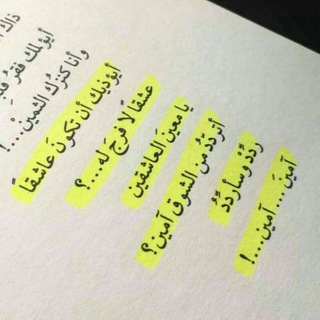 ذاك
أيؤلمك فقرُ قلبٍ
وأنا كنزك الثمين...!
أيؤذيك أن تكونَ عاشقاً
عشقاً لا فرجَ له...؟
يا معينَ العاشقين
أتردّدُ من الشوق آمين؟
ردِّدْ وسأردّدُ
آمينَ... آمين...!